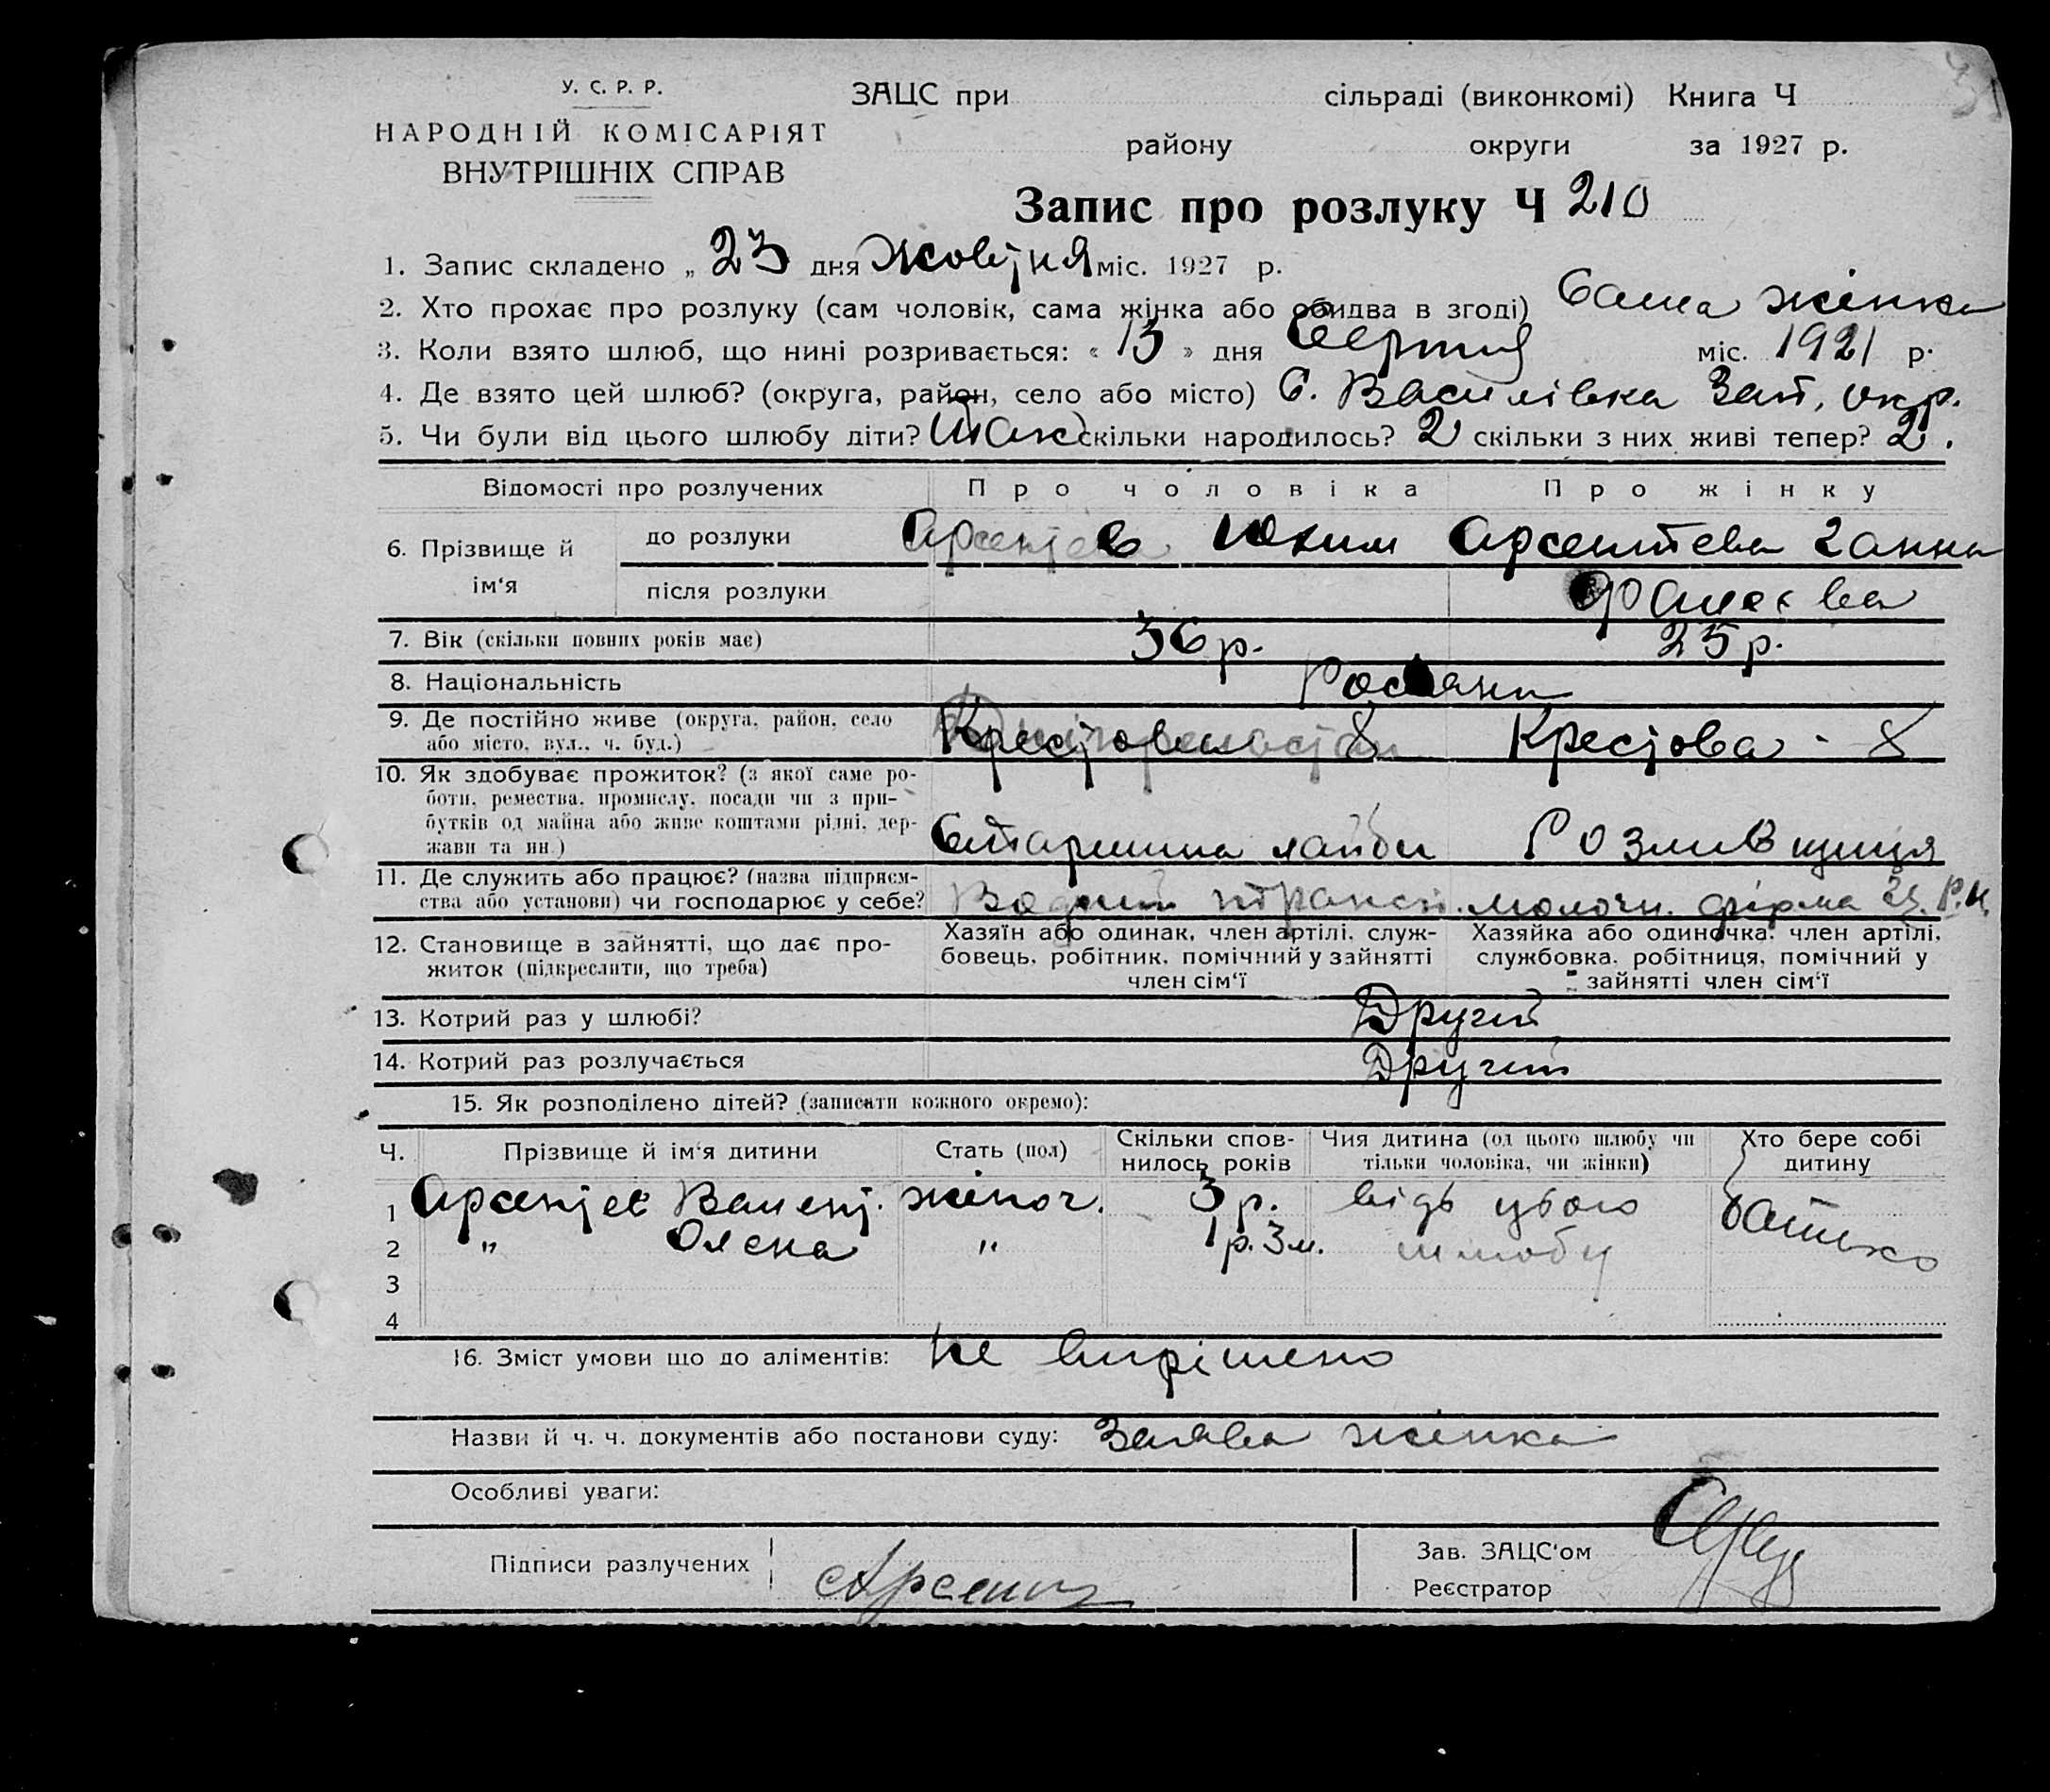 У. С. Р. Р.
НАРОДНІЙ КОМІСАРІЯТ
ВНУТРІШНІХ СПРАВ
ЗАЦС при сільраді (виконкомі) Книга Ч
району округи за 1927 р.
Запис про розлуку Ч 210
1. Запис складено „ 23 дня Жовтня міс. 1927 р.
2. Хто прохає про розлуку (сам чоловік, сама жінка або обидва в згоді) Сама жінка
3. Коли взято шлюб, що нині розривається: « 13 » дня Серпня міс. 1921 р.
4. Де взято цей шлюб? (округа, район, село або місто) С. Василівка Зап. окр.
5. Чи були від цього шлюбу діти? Так скільки народилось? 2 скільки з них живі тепер? 2.
Відомості про розлучених Про чоловіка Про жінку
6. Прізвище й ім‘я
до розлуки Арсентьев Юхим Арсентєва Ганна
після розлуки
7. Вік (скільки повних років має) 36 р. 25 р.
8. Національність Росіяни
9. Де постійно живе (округа, район, село або місто, вул., ч. буд.) Крестова 8 Крестова - 8
10. Як здобуває прожиток? (з якої саме роботи, ремества, промислу, посади чи з прибутків од майна або живе коштами рідні, держави та ин.) Старшина лайби Розливщиця
11. Де служить або працює? (назва підприємства або установи) чи господарює у себе? Водний трансп. Молочн. фірма Ц.Р.К.
12. Становище в зайнятті, що дає прожиток (підкреслити, що треба)
Хазяїн або одинак, член артілі, службовець, робітник, помічний у зайнятті член сім‘ї
Хазяйка або одиночка, член артілі, службовка, робітниця, помічний у зайнятті член сім‘ї
13. Котрий раз у шлюбі? Другий
14. Котрий раз розлучається Другий
15. Як розподілено дітей? (записати кожного окремо):
Ч. Прізвище й ім‘я дитини Стать (пол) Скільки сповнилось років Чия дитина (од цього шлюбу чи тільки чоловіка, чи жінки) Хто бере собі дитину
1 Арсентьев Валент. жіноч. 3 р. відь цього батько
2 " Олена " 1 р. 3 м. шлюбу
3
4
16. Зміст умови що до аліментів: Не вирішено
Назви й ч. ч. документів або постанови суду: Заява жінка
Особливі уваги:
Підписи разлучених
Зав. ЗАЦС'ом
Реєстратор